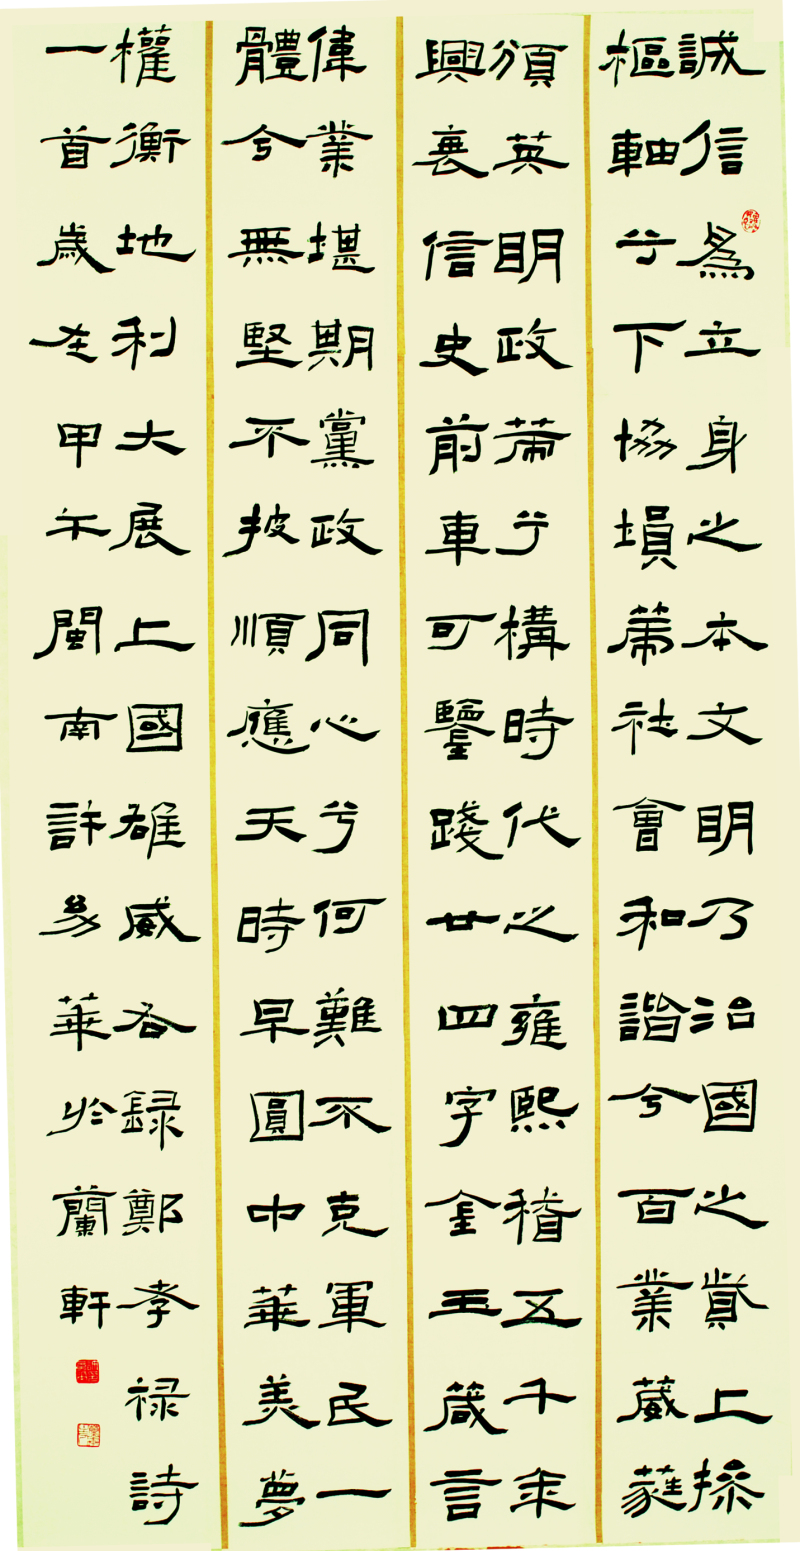 誠信為立身之本文明乃治國之資上操
樞軸兮下協塤社會和諧兮百業葳蕤
頒英明政策兮構時代之雍熙稽五千年
興衰信史前車可鑒踐廿四字金玉箴言
偉業堪期黨政同心兮何難不克軍民一
體兮無堅不披順應天時早圓中華美夢
權衡地利大展上國雄威右錄鄭孝祿詩
一首歲在甲午閩南許華於蘭軒